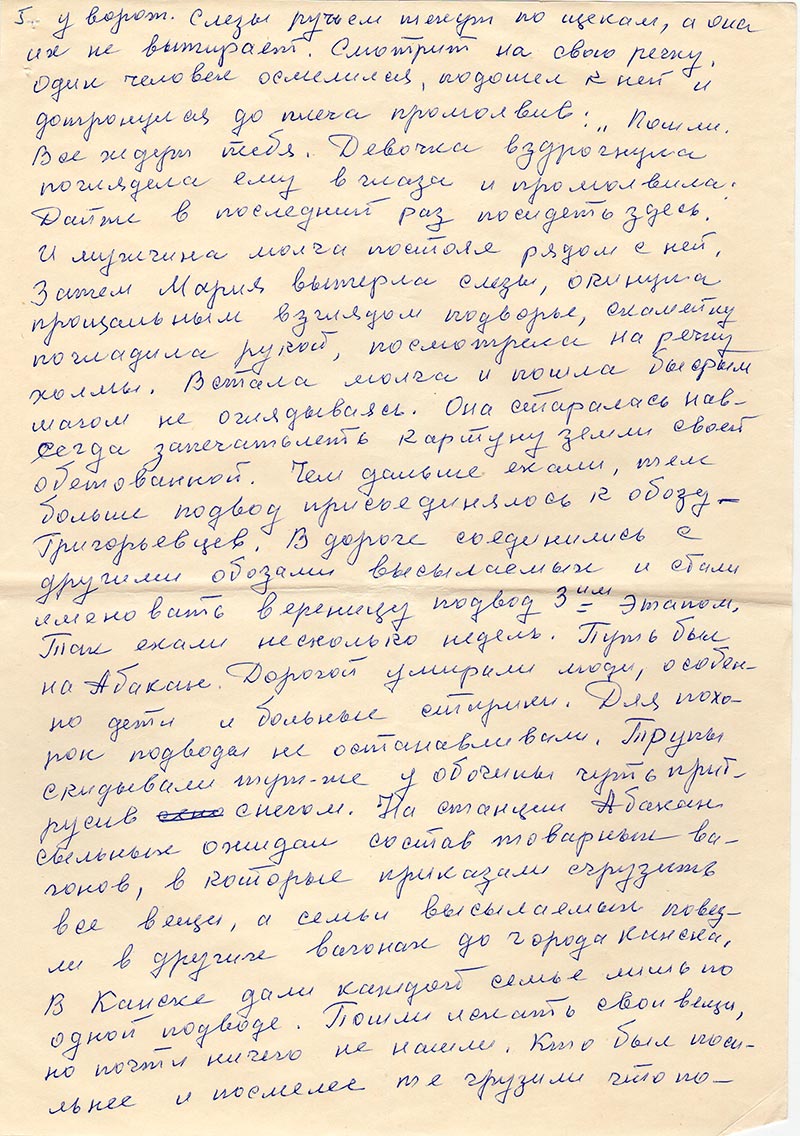 5. у ворот. Слезы ручьем текут по щекам, а она
их не вытирает. Смотрит на свою речку.
Один человек осмелился, подошел к ней и
дотронулся до плеча промолвив: „ Пошли.
Все ждут тебя. Девочка вздрогнула
поглядела ему в глаза и промолвила.
Дайте в последний раз посидеть здесь.
И мужчина молча постоял рядом с ней.
Затем Мария вытерла слезы, окинула
прощальным взглядом подворье, скамейку
погладила рукой, посмотрела на речку
холмы. Встала молча и пошла быстрым
шагом не оглядываясь. Она старалась нав-
сегда запечатлеть картину земли своей
обетованной. Чем дальше ехали, тем
больше подвод присоединялось к обозу –
Григорьевцев. В дороге соединились с
другими обозами высылаемых и стали
именовать вереницу подвод 3им Этапом.
Так ехали несколько недель. Путь был
на Абакан. Дорогой умирали люди, особен-
но дети и больные старики. Для похо-
рон подводы не останавливали. Трупы
скидывали тут-же у обочины чуть прит-
русив снегом. На станции Абакан
ссыльных ожидал состав товарных ва-
гонов, в которые приказали сгрузить
все вещи, а семьи высылаемых повез-
ли в других вагонах до города Канска.
В Канске дали каждой семье лишь по
одной подводе. Пошли искать свои вещи,
но почти ничего не нашли. Кто был поси-
льнее и посмелее те грузили что по-